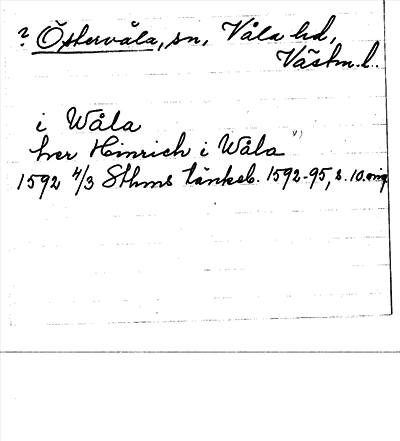 ? Östervåla, sn, Våla hd,
Västm. l.
i Wåla
her Hinrich i Wåla 1)
1592 4/3 Sthms tänkeb. 1592-95, s. 10. orig